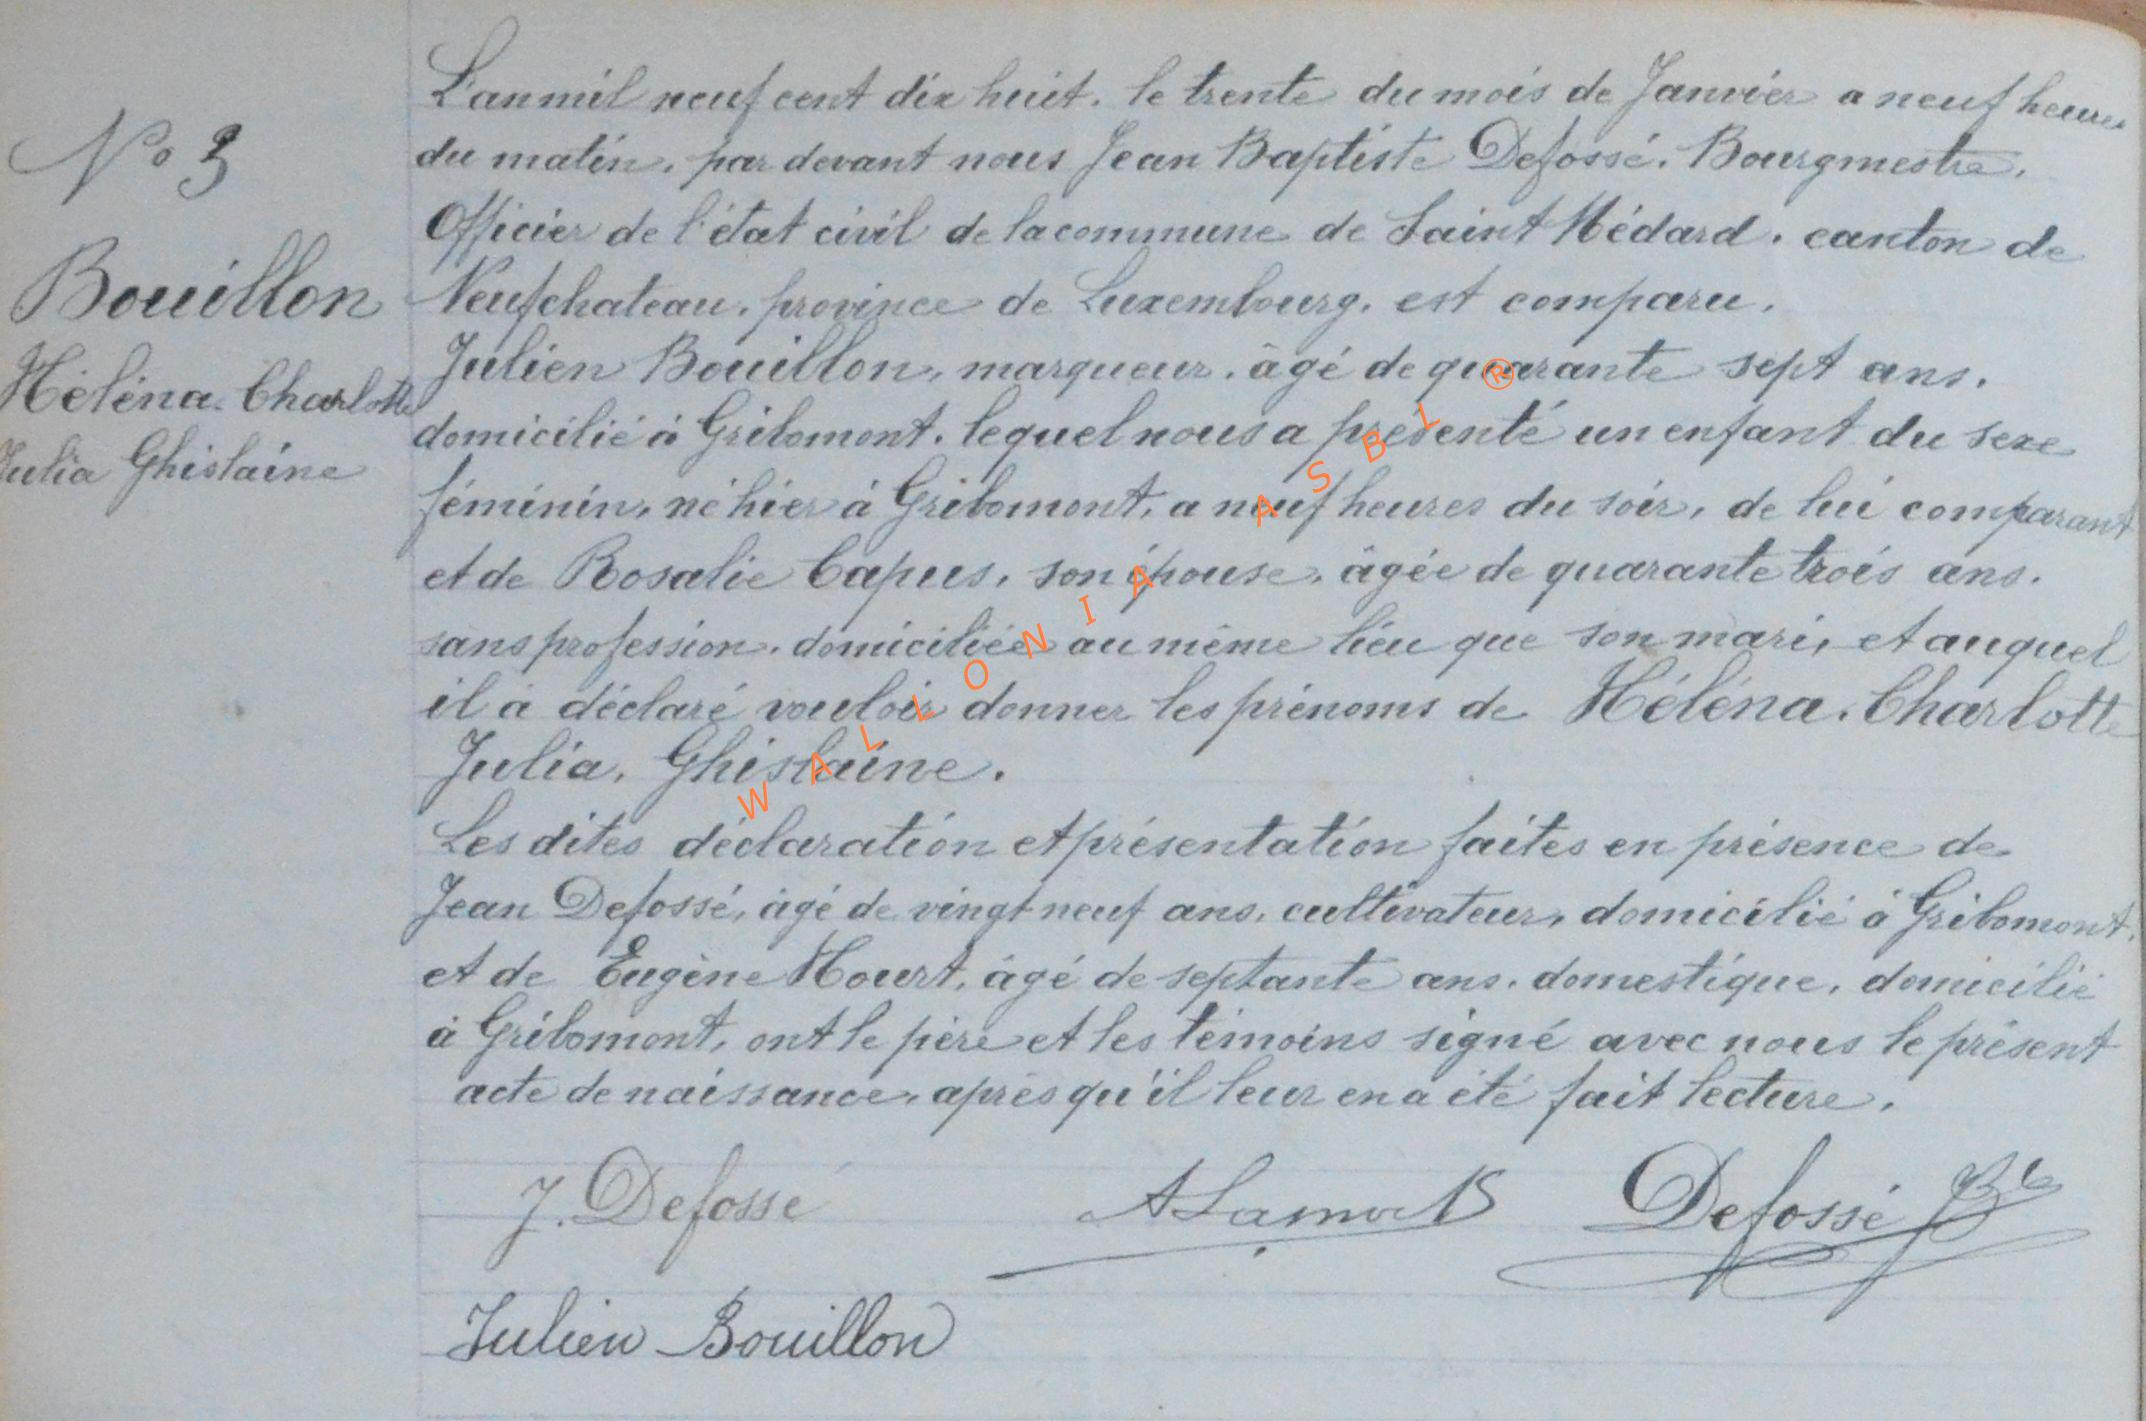 N° 3
Bouillon
Héléna. Charlotte
Julia Ghislaine
L'an mil neuf cent dix huit. le trente du mois de Janvier a neuf heures
du matin, par devant nous Jean Baptiste Defossé. Bourgmestre.
Officier de l'état civil de la commune de Saint Médard. canton de
Neufchateau. province de Luxembourg. est comparu.
Julien Bouillon, marqueur. âgé de quarante sept ans.
domicilié à Gribomont. lequel nous a présenté un enfant du sexe
féminin, né hier à Gribomont, a neuf heures du soir, de lui comparant
et de Rosalie Capus, son épouse, âgée de quarante trois ans.
sans profession. domiciliée au même lieu que son mari, et auquel
il à déclaré vouloir donner les prénoms de Héléna. Charlotte
Julia, Ghislaine.
Les dites déclaration et présentation faites en présence de
Jean Defossé, âgé de vingt neuf ans, cultivateur, domicilié à Gribomont.
et de Eugène, âgé de septante ans. domestique, domicilié
à Gribomont, ont le père et les témoins signé avec nous le présent
acte de naissance, après qu'il leur en a été fait lecture.
J. Defossé
Defossé JB
Julien Bouillon
WALLONIA ASBL ®